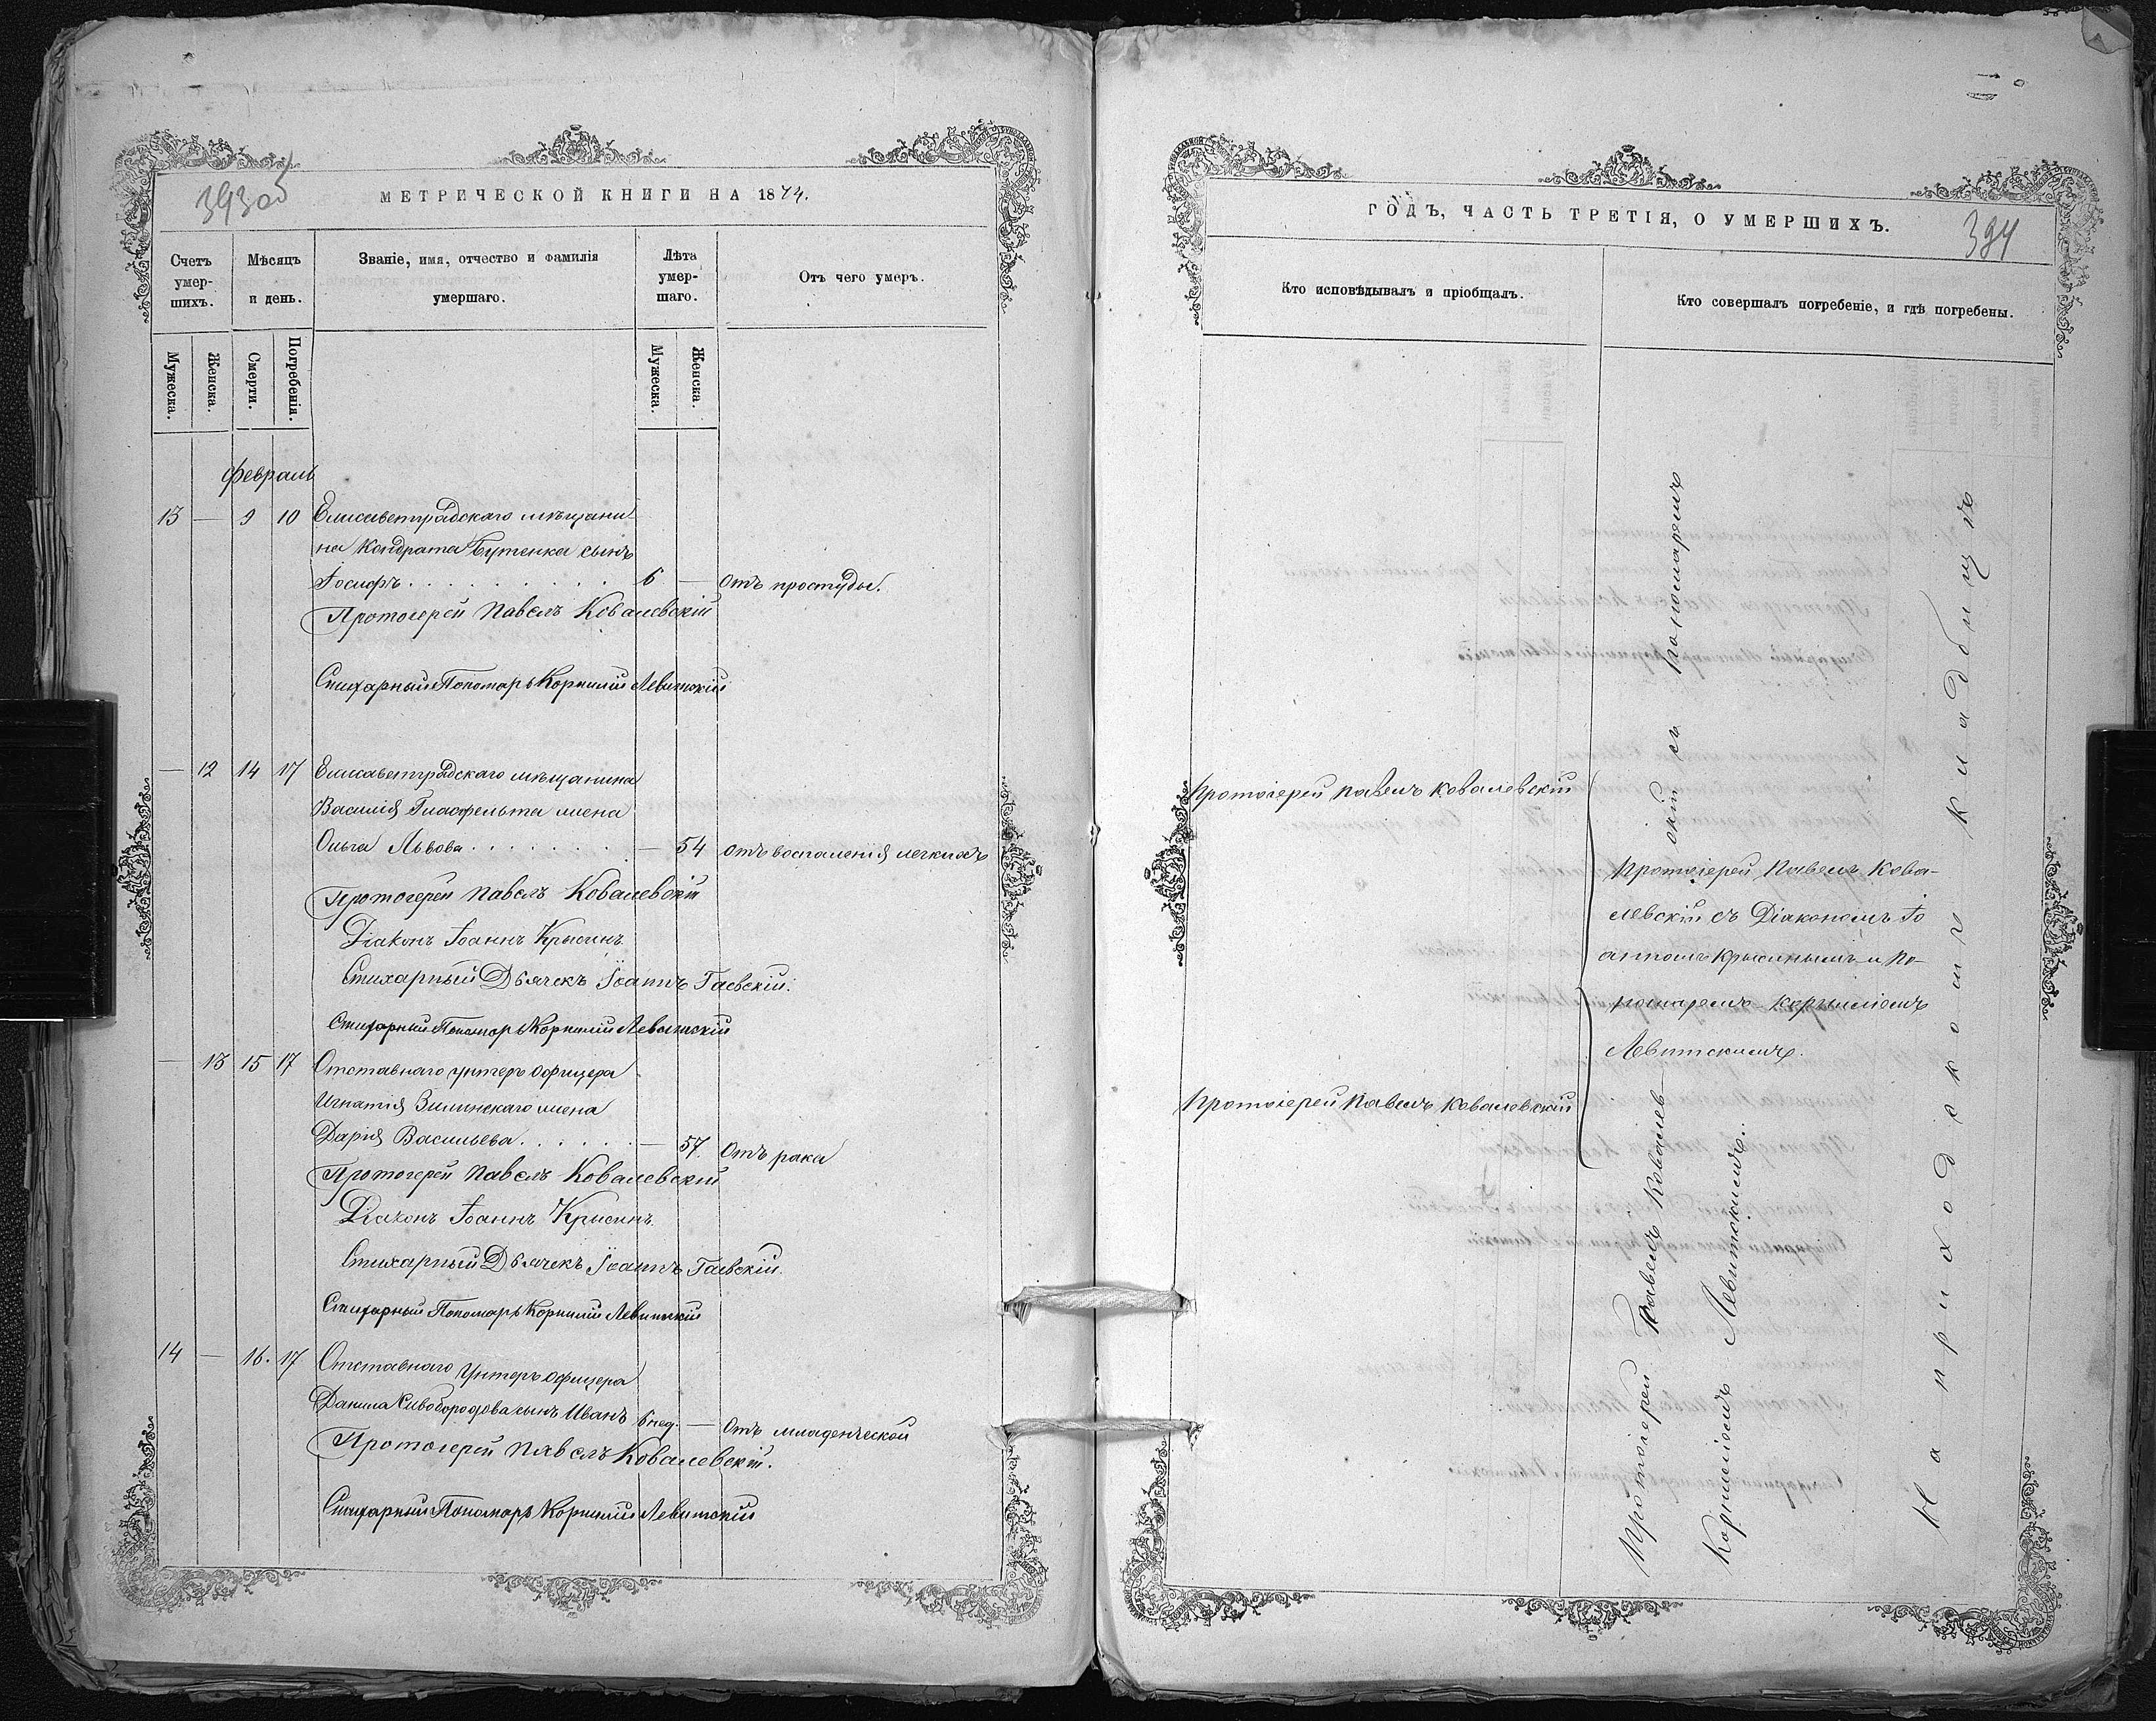 393об
МЕТРИЧЕСКОЙ КНИГИ НА 1874.
Счетъ умер-шихъ.
Мѣсяцъ и день.
Званіе, имя, отчество и фамилія умершаго.
Лѣта умер-шаго.
Отъ чего умеръ.
Мужеска.
Женска.
Смерти.
Погребенія.
Мужеска.
Женска.
Февраль
13 — 9 10 Елисаветградскаго мѣщани
на Кондрата Бутенка сынъ
Іосифъ . . . . . . . . . 6 — Отъ простуды.
Протоіерей Павелъ Ковалевскій
Стихарный Пономарь Корнилій Левитскій
— 12 14 17 Елисаветградскаго мѣщанина
Василія жена
Ольга Львова . . . . . . . — 54 отъ воспаленія легкихъ
Протоіерей Павелъ Ковалевскій
Діаконъ Іоаннъ Крысинъ
Стихарный Дьячекъ Іоаннъ Гаевскій.
Стихарный Пономарь Корнилій Левитскій
— 13 15 17 Отставнаго унтеръ офицера
Игнатія Зилинскаго жена
Дарія Васильева . . . . . . — 57. Отъ рака
Протоіерей Павелъ Ковалевскій
Діаконъ Іоаннъ Крысинъ
Стихарный Дьячекъ Іоаннъ Гаевскій.
Стихарный Пономарь Корнилій Левитскій
14 — 16. 17 Отставнаго Унтеръ офицера
Данила Сивобородова сынъ Иванъ 6 нед. — Отъ младенческой
Протоіерей Павелъ Ковалевскій.
Стихарный Пономарь Корнилій Левитскій
ГОДЪ, ЧАСТЬ ТРЕТІЯ, О УМЕРШИХЪ.
394
Кто исповѣдывалъ и пріобщалъ.
Кто совершалъ погребеніе, и гдѣ погребены.
Протоіерей Павелъ Ковалевскій
Протоіерей Павелъ Кова-
левскій съ Діакономъ Іо
анномъ Крысинымъ и По-
номаремъ Корниліемъ
Левитскимъ.
Протоіерей Павелъ Ковалевскій
Протоіерей Павелъ Ковалев
скій съ пономаремъ
Корниліемъ Левитскимъ.
На приходскомъ кладбищѣ